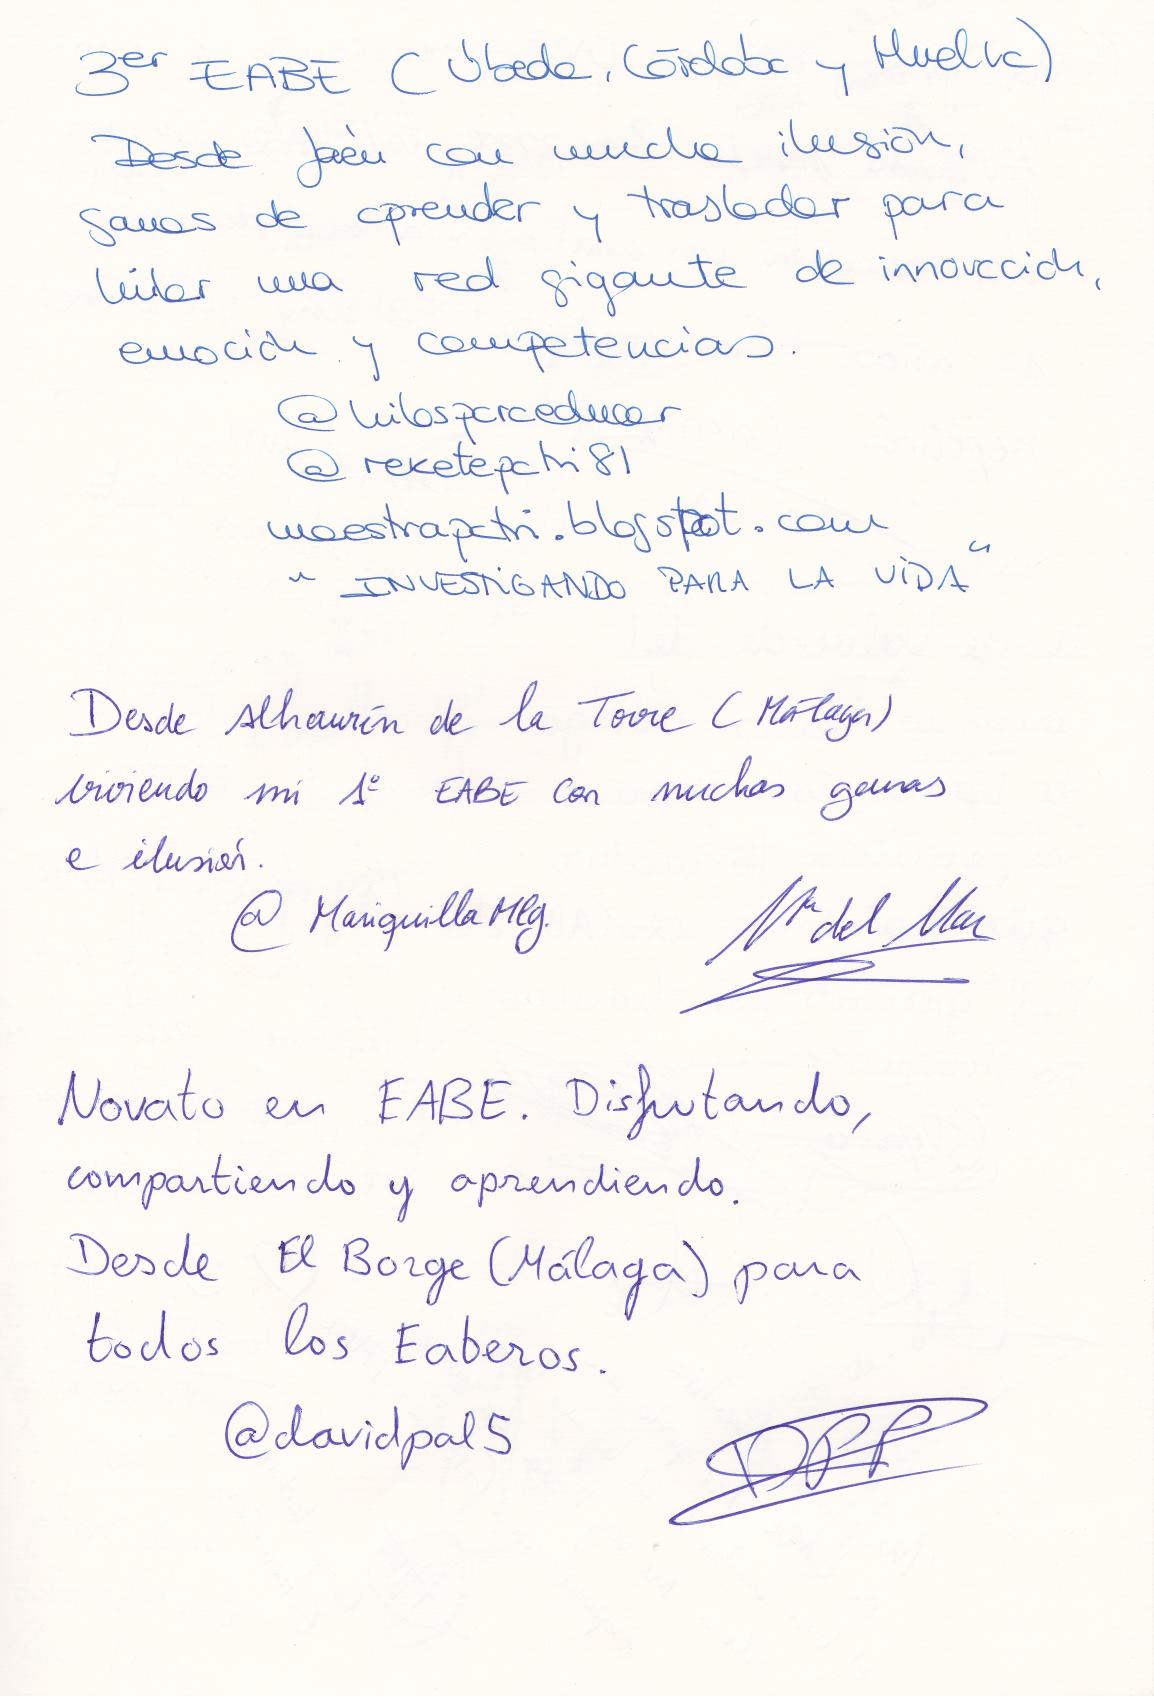 3er EABE (Úbeda, Córdoba y Huelva)
Desde Jaén con mucha ilusión,
ganas de aprender y trasladar para
hilar una red gigante de innovación,
emoción y competencias.
@hilosparaeducar
@reketepatri81
maestrapatri.blogspot.com
"INVESTIGANDO PARA LA VIDA"
Desde Alhaurín de la Torre (Málaga)
viviendo mi 1º EABE con muchas ganas
e ilusión.
@MariquillaMlg.
Mª del Mar
Novato en EABE. Disfrutando,
compartiendo y aprendiendo.
Desde El Borge (Málaga) para
todos los Eaberos.
@davidpal5
DPP